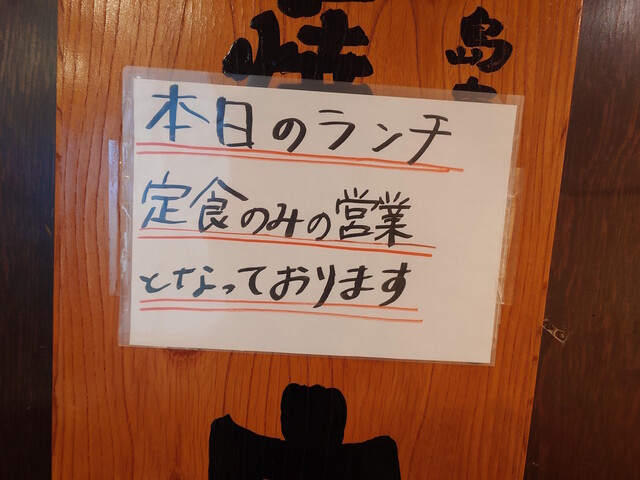 本日のランチ
定食のみの営業
となっております
島